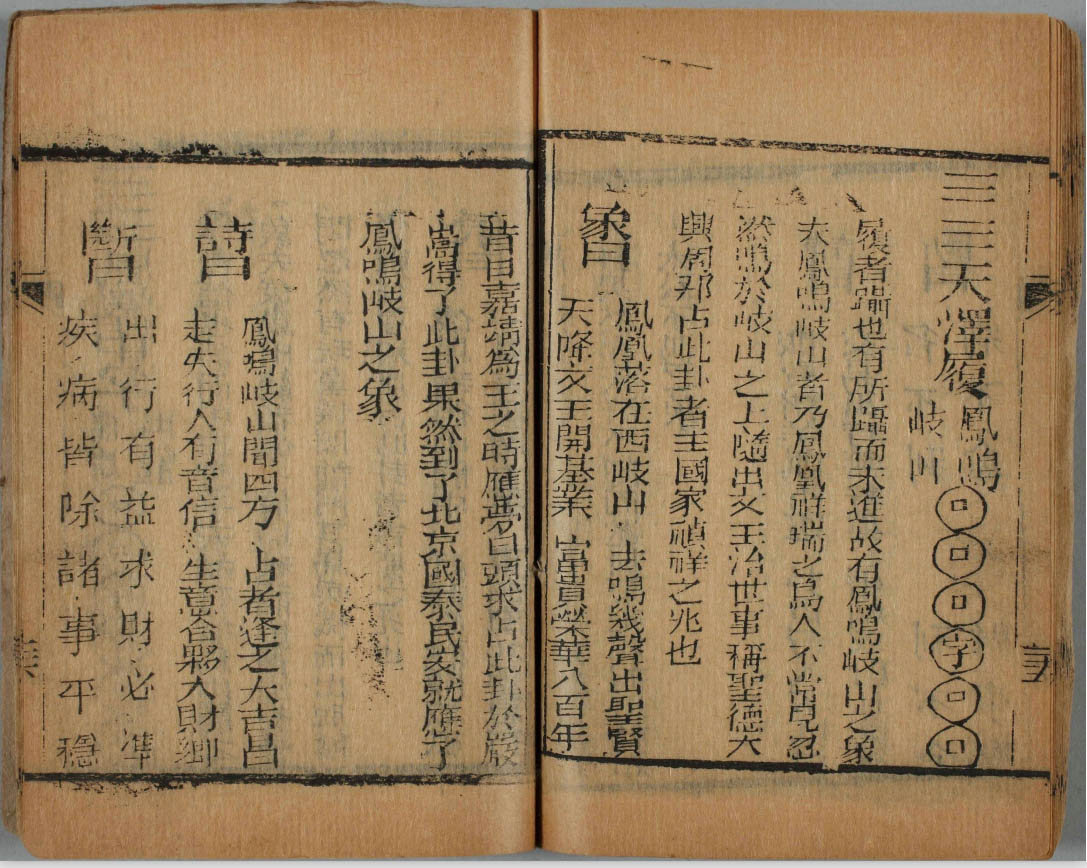 天澤履
鳳鳴
岐山
口口口字口口
履者躡也有所躡而未進故有鳳鳴岐山之象
夫鳳鳴岐山者乃鳳凰祥瑞之鳥人不常見忽
然鳴於岐山之上隨出文王治世事稱聖德大
興周邦占此卦者主國家禎祥之兆也
象曰
鳳凰落在西岐山 去鳴幾聲出聖賢
天降文王開基業 富貴榮華八百年
昔日嘉靖為王之時應夢白頭求占此卦於嚴
嵩得了此卦果然到了北京國泰民安就應了
鳳鳴岐山之象
詩曰
鳳鳴岐山聞四方 占者逢之大吉昌
走失行人有音信 生意合夥人財鄉
斷曰
出行有益求財必準
疾病皆除諸事平穩